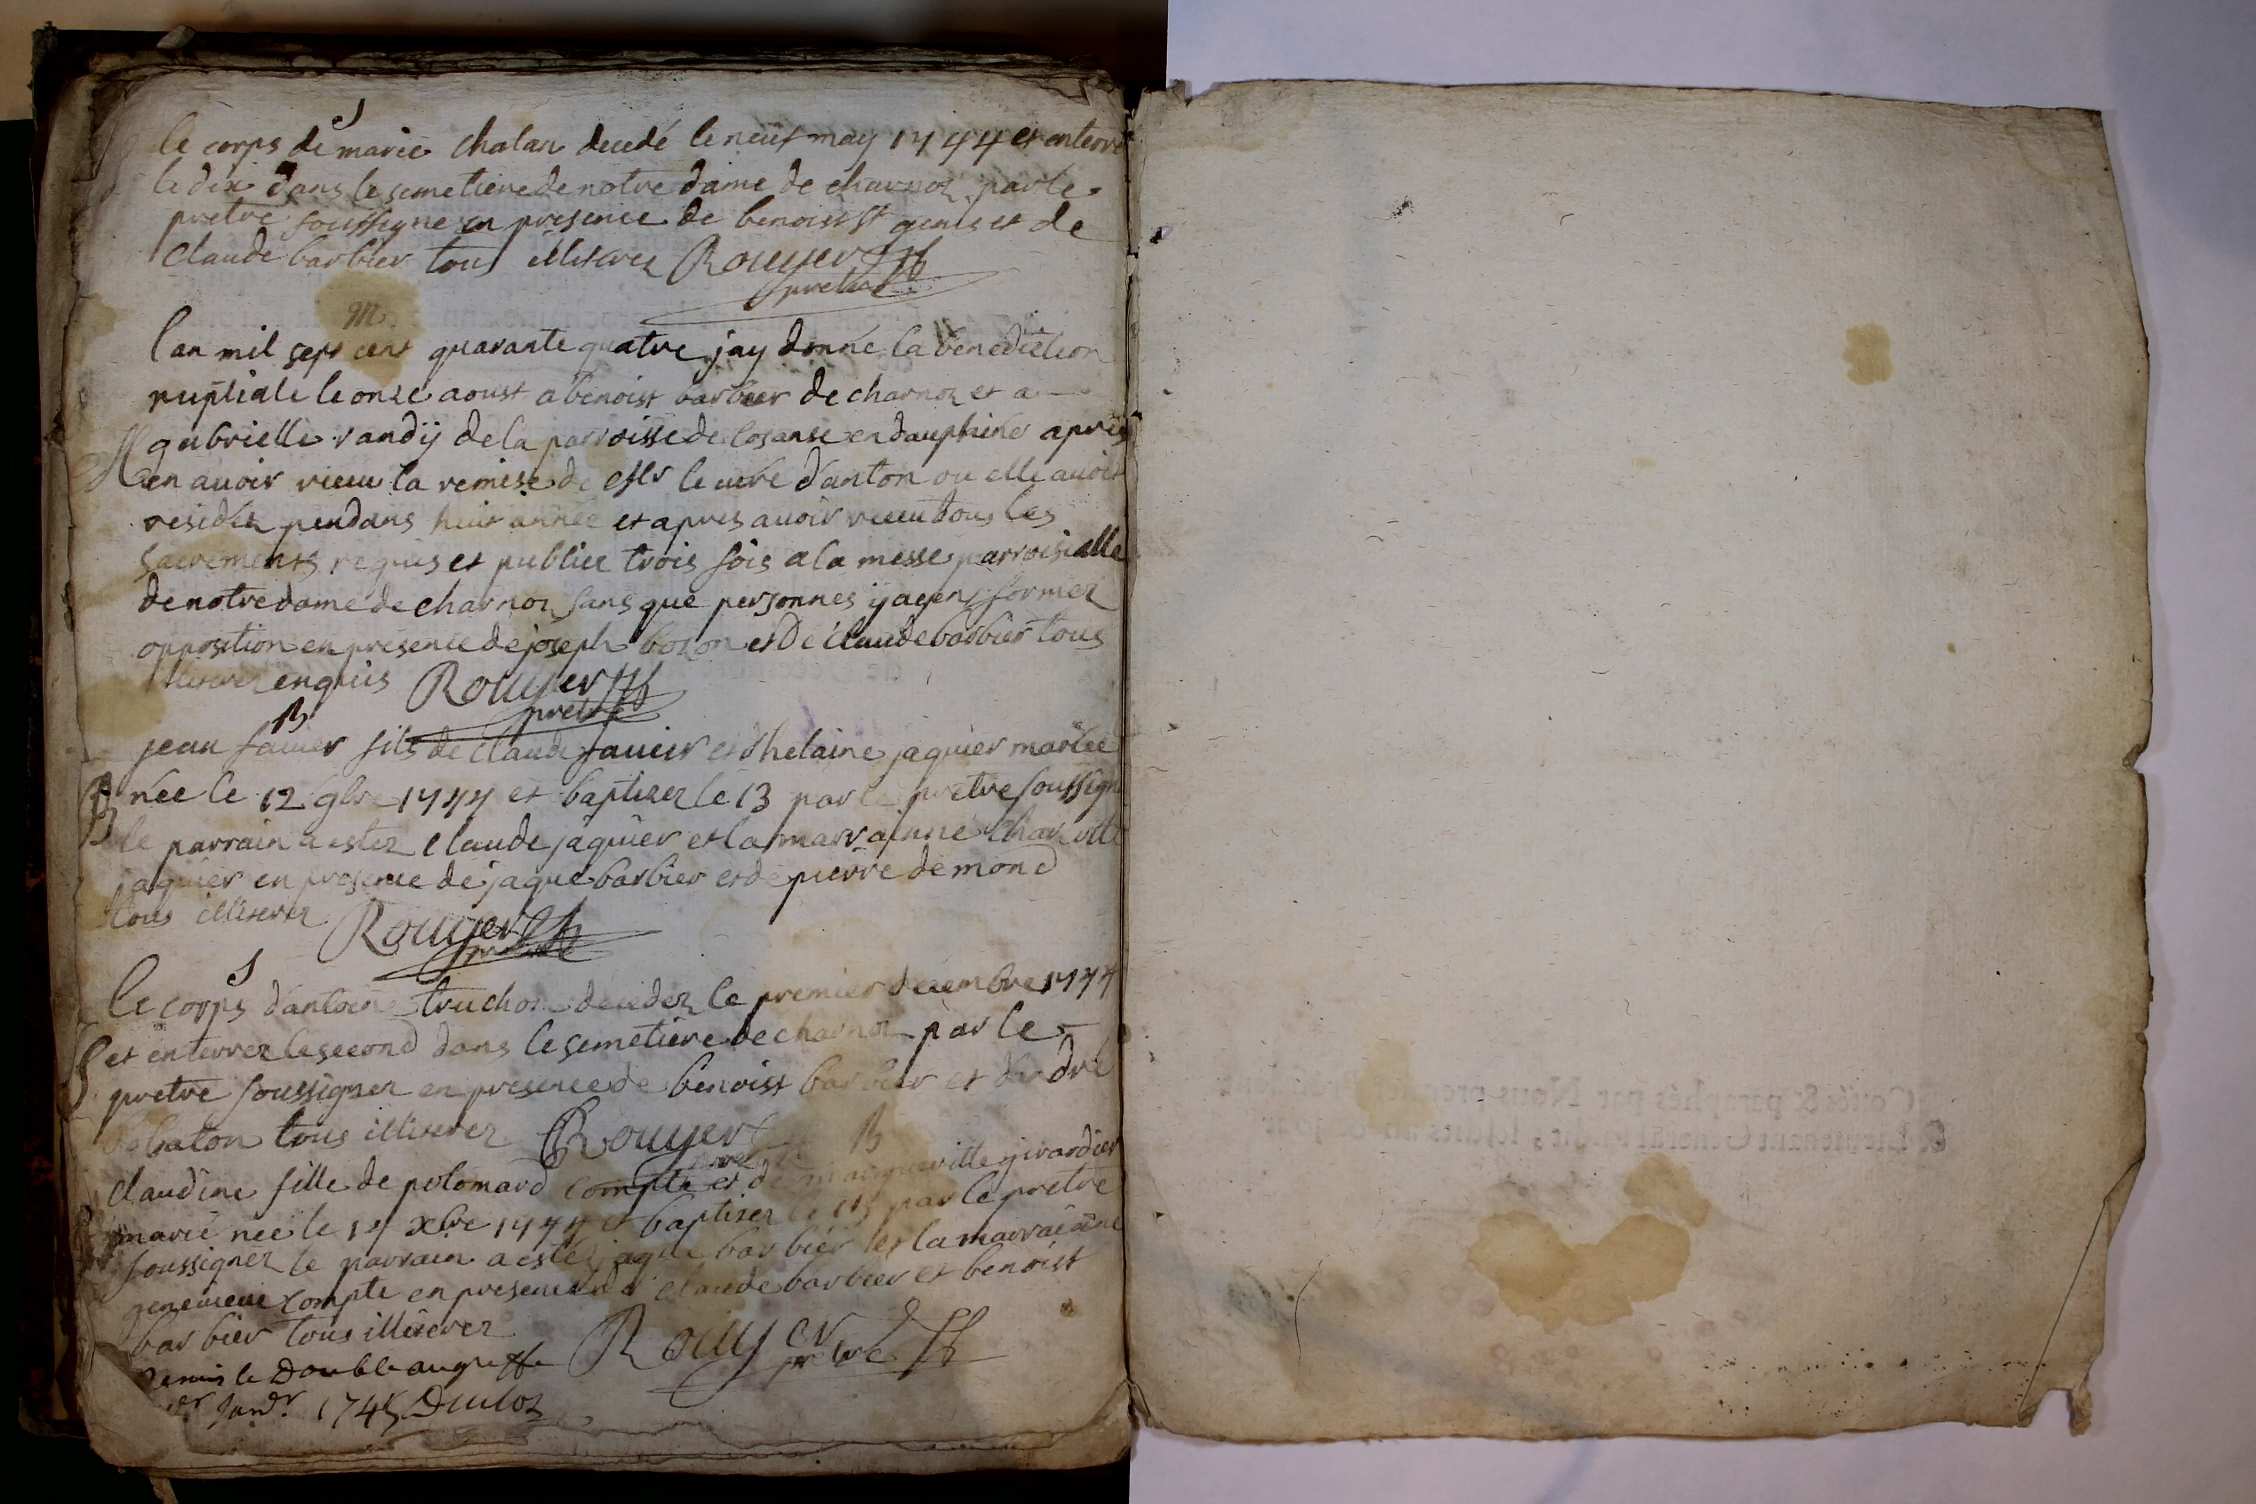 S
le corps de marie chatan decedé le neuf may 1744 et enterré
le dix dans le semetiere de notre dame de charnoz par le
pretre soussigne en presence de benoist St genis et de
Claude barbier tous illiterez Rouyer
pretre
M
lan mil sept cent quarante quatre jay donné la benediction
nuptiale le onze aoust a benoist barbier de charnoz et a
gabrielle randy de la parroisse de losanse en dauphiné apres
M en avoir recu la remise de Mr le curé d'anton ou elle avoit
residéz pendans huit année et apres avoir recu tous les
sacrements requis et publiee trois fois a la messe parroisialle
de notre dame de charnoz sans que personnes y ayent formez
opposition en presence de joseph bozon et De claude barbier tous
illiterez enquis Rouyer
pretre
B
jean favier fils de claude favier et d'helaine jaquier mariée
B née le 12 9bre 1744 et baptisez le 13 par le pretre soussigne
le parrain a estez claude jaquier et la marrainne
jaquier en presence de jaque barbier et de pierre demond
tous illiterez Rouyer
pretre
S
le corps d'antoine truchon decedez le premier decembre 1744
S et enterrez le second dans le semetiere de charnoz par le
pretre soussignez en presence de benoist barbier et d'andré
tous illiterez Rouyer
pretre B
claudine fille de polomard compte et de margueritte girardier
marié née le 14 xbre 1744 et baptisez le 15 par le pretre
soussignez le parrain a estéz jaque barbier et la marrainne
genevieve compte en presence de claude barbier et benoist
barbier tous illiterez Rouyer
pretre
remis le double au greffe
er Janvr 1745 Duclos
Cottés & paraphés par Nous premier
& Lieutenant General